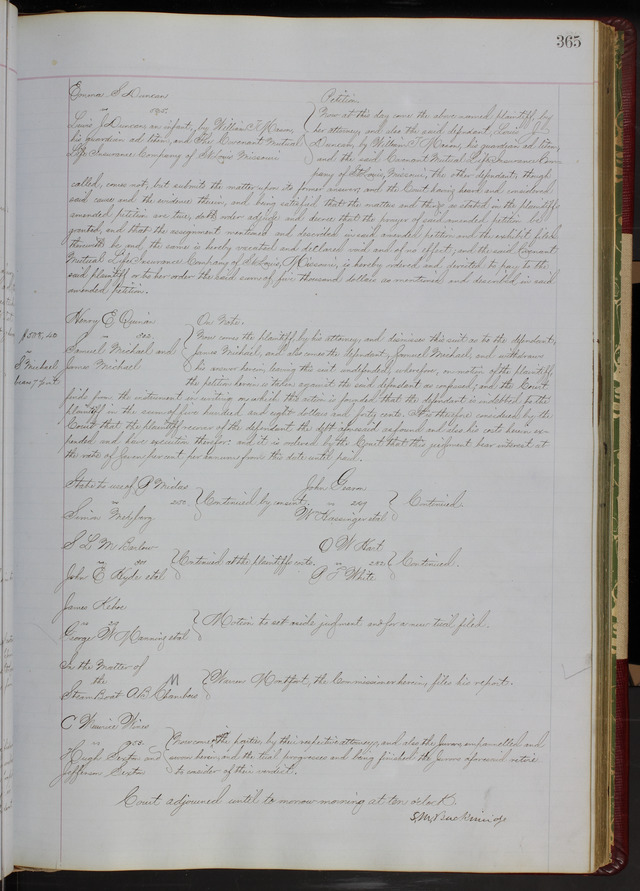 365
Emma S Duncan
vs
Lewis J Duncan, an infant, by William T Mason,
his guardian ad litem, and The Covenant Mutual
Life Insurance Company of St Louis Missouri
Petition
Now at this day come the above named plaintiff by
her attorney, and also the said defendant, Lewis J
Duncan, by William T Mason, his guardian ad litem,
and the said Covenant Mutual Life Insurance Com
pany of St Louis, Missouri, the other defendant, though
called, comes not, but submits the matter upon its former answer, and the Court having heard and considered
said cause and the evidence therein, and being satisfied that the matters and things as stated in the plaintiffs
amended petition are true, doth order adjudge and decree that the prayer of said amended petition be
granted, and that the assignment mentioned and described in said amended petition and the exhibit filed
therewith be and, the same is hereby vacated and declared void and of no effect; and the said Covenant
Mutual Life Insurance Company of St Louis, Missouri, is hereby ordered and directed to pay to the
said plaintiff or to her order the said sum of five thousand dollars as mentioned and described in said
amended petition.
$508.40
vs
S Michael
bears 7 p ct
Henry E
vs
Samuel Michael and
James Michael
On Note.
Now comes the plaintiff by his attorney, and dismisses this suit as to the defendant,
James Michael, and also comes the defendant, Samuel Michael, and withdraws
his answer herein, leaving the suit undefended, wherefore, on motion of the plaintiff
the petition herein is taken against the said defendant as confessed; and the Court
finds from the instrument in writing on which this action is founded that the defendant is indebted to the
plaintiff in the sum of five hundred and eight dollars and forty cents. It is therefore considered by the
Court that the plaintiff recover of the defendant the debt aforesaid as found and also his costs herein ex-
pended and have execution therefor: and it is ordered by the Court that this judgment bear interest at
the rate of seven per cent per annum from this date until paid.
State to use of P
vs
Continued by consent.
John
vs
W Kassinger et al
Continued
S L M Barlow
vs
John E Hyde et al
Continued at the plaintiffs costs.
O W Hart
vs
P F White
Continued.
James Kehoe
vs
George W Manning et al
Motion to set aside judgment and for a new trial filed.
In the Matter of
the
Steam Boat A B Chambers
Warren Montfort, the Commissioner herein, files his report.
C Maurice Wines
vs
Hugh Sexton and
Jefferson Sexton
Now come the parties, by their respective attorneys, and also the Jurors empannelled and
sworn herein, and the trial progresses and being finished the Jurors aforesaid retire
to consider of their verdict.
Court adjourned until tomorrow morning at ten o'clock.
S. M. Breckinridge